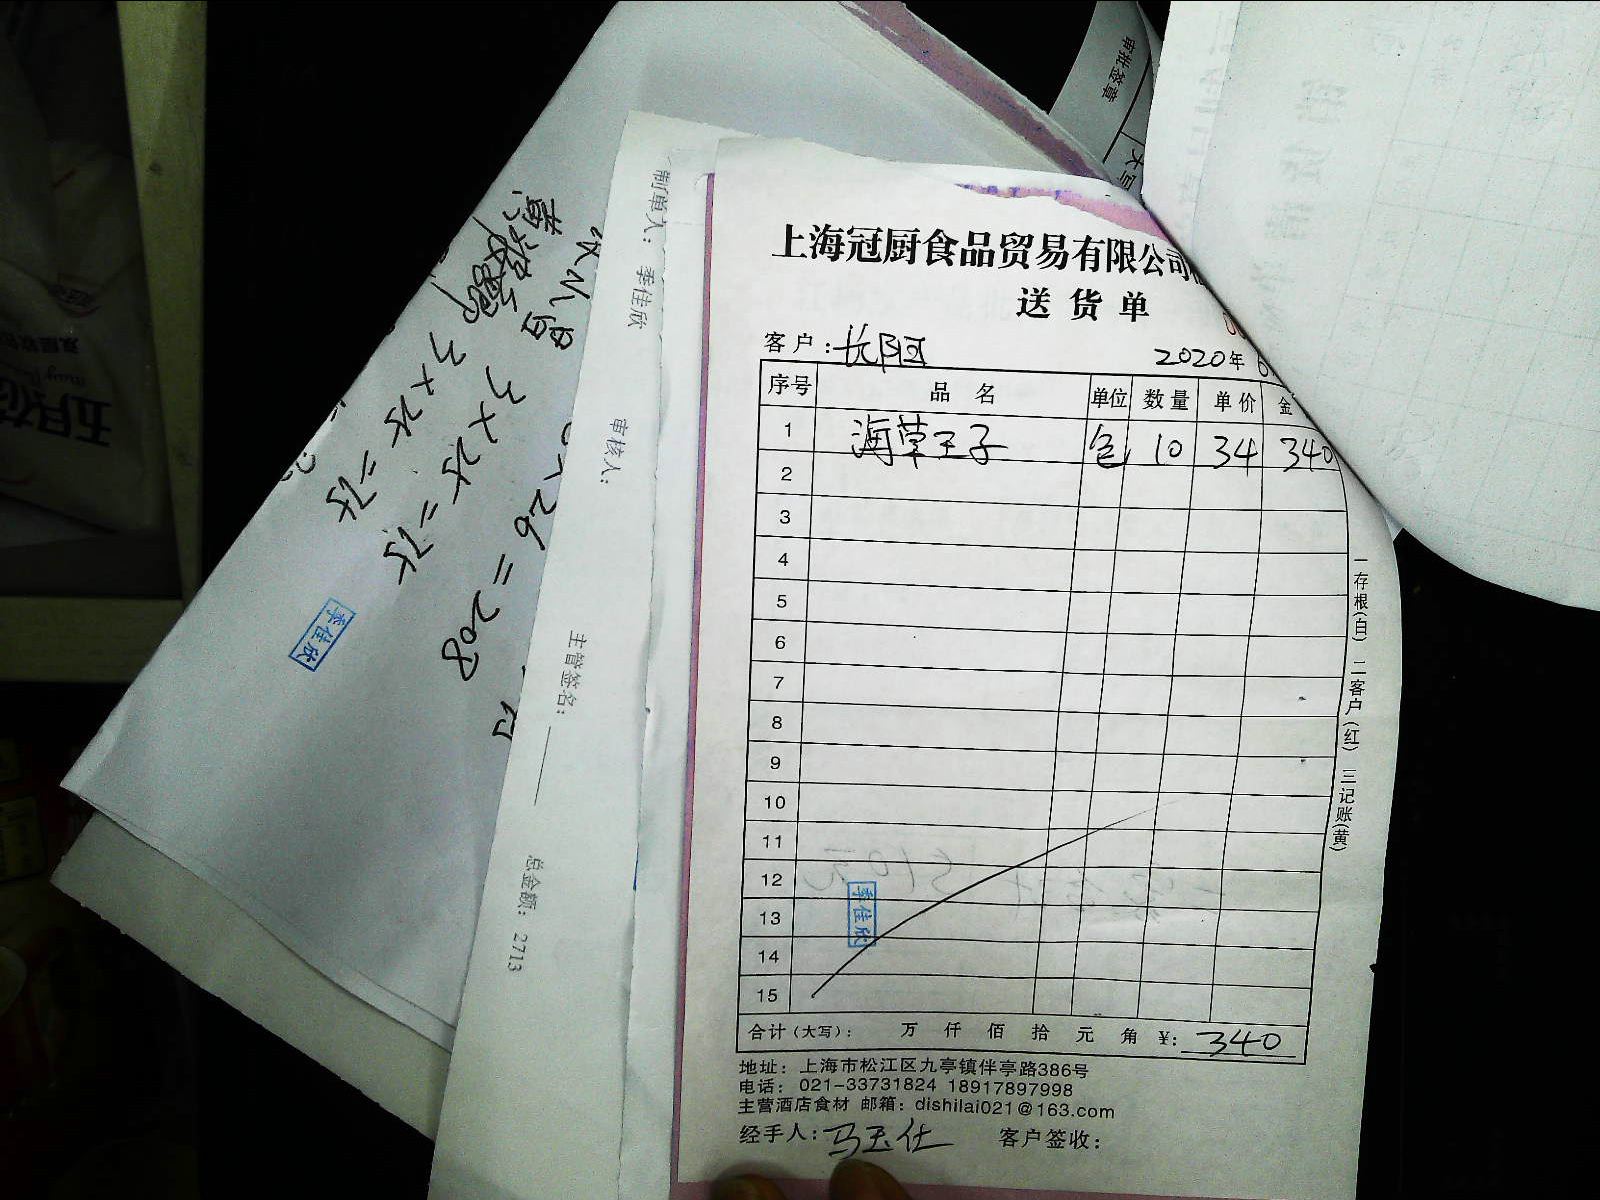 上海冠厨食品贸易有限公司
送货单
客户：长阳
2020年6
序号 品名 单位 数量 单价 金
1 海草王子 包 10 34 340
2
3
4
5
6
7
8
9
10
11
12
13
14
15
季佳欣
合计（大写）： 万 仟 佰 拾 元 角 ¥：340
地址：上海市松江区九亭镇伴亭路386号
电话：021-33731824 18917897998
主营酒店食材 邮箱：dishilai021@163.com
经手人：马玉仕 客户签收：
一存根（白） 二客户（红） 三记账（黄）
制单人：季佳欣
审核人：
主管签名：
总金额：2713
×26=208
3×25=75
3×25=75
季佳欣
审批签章
大写